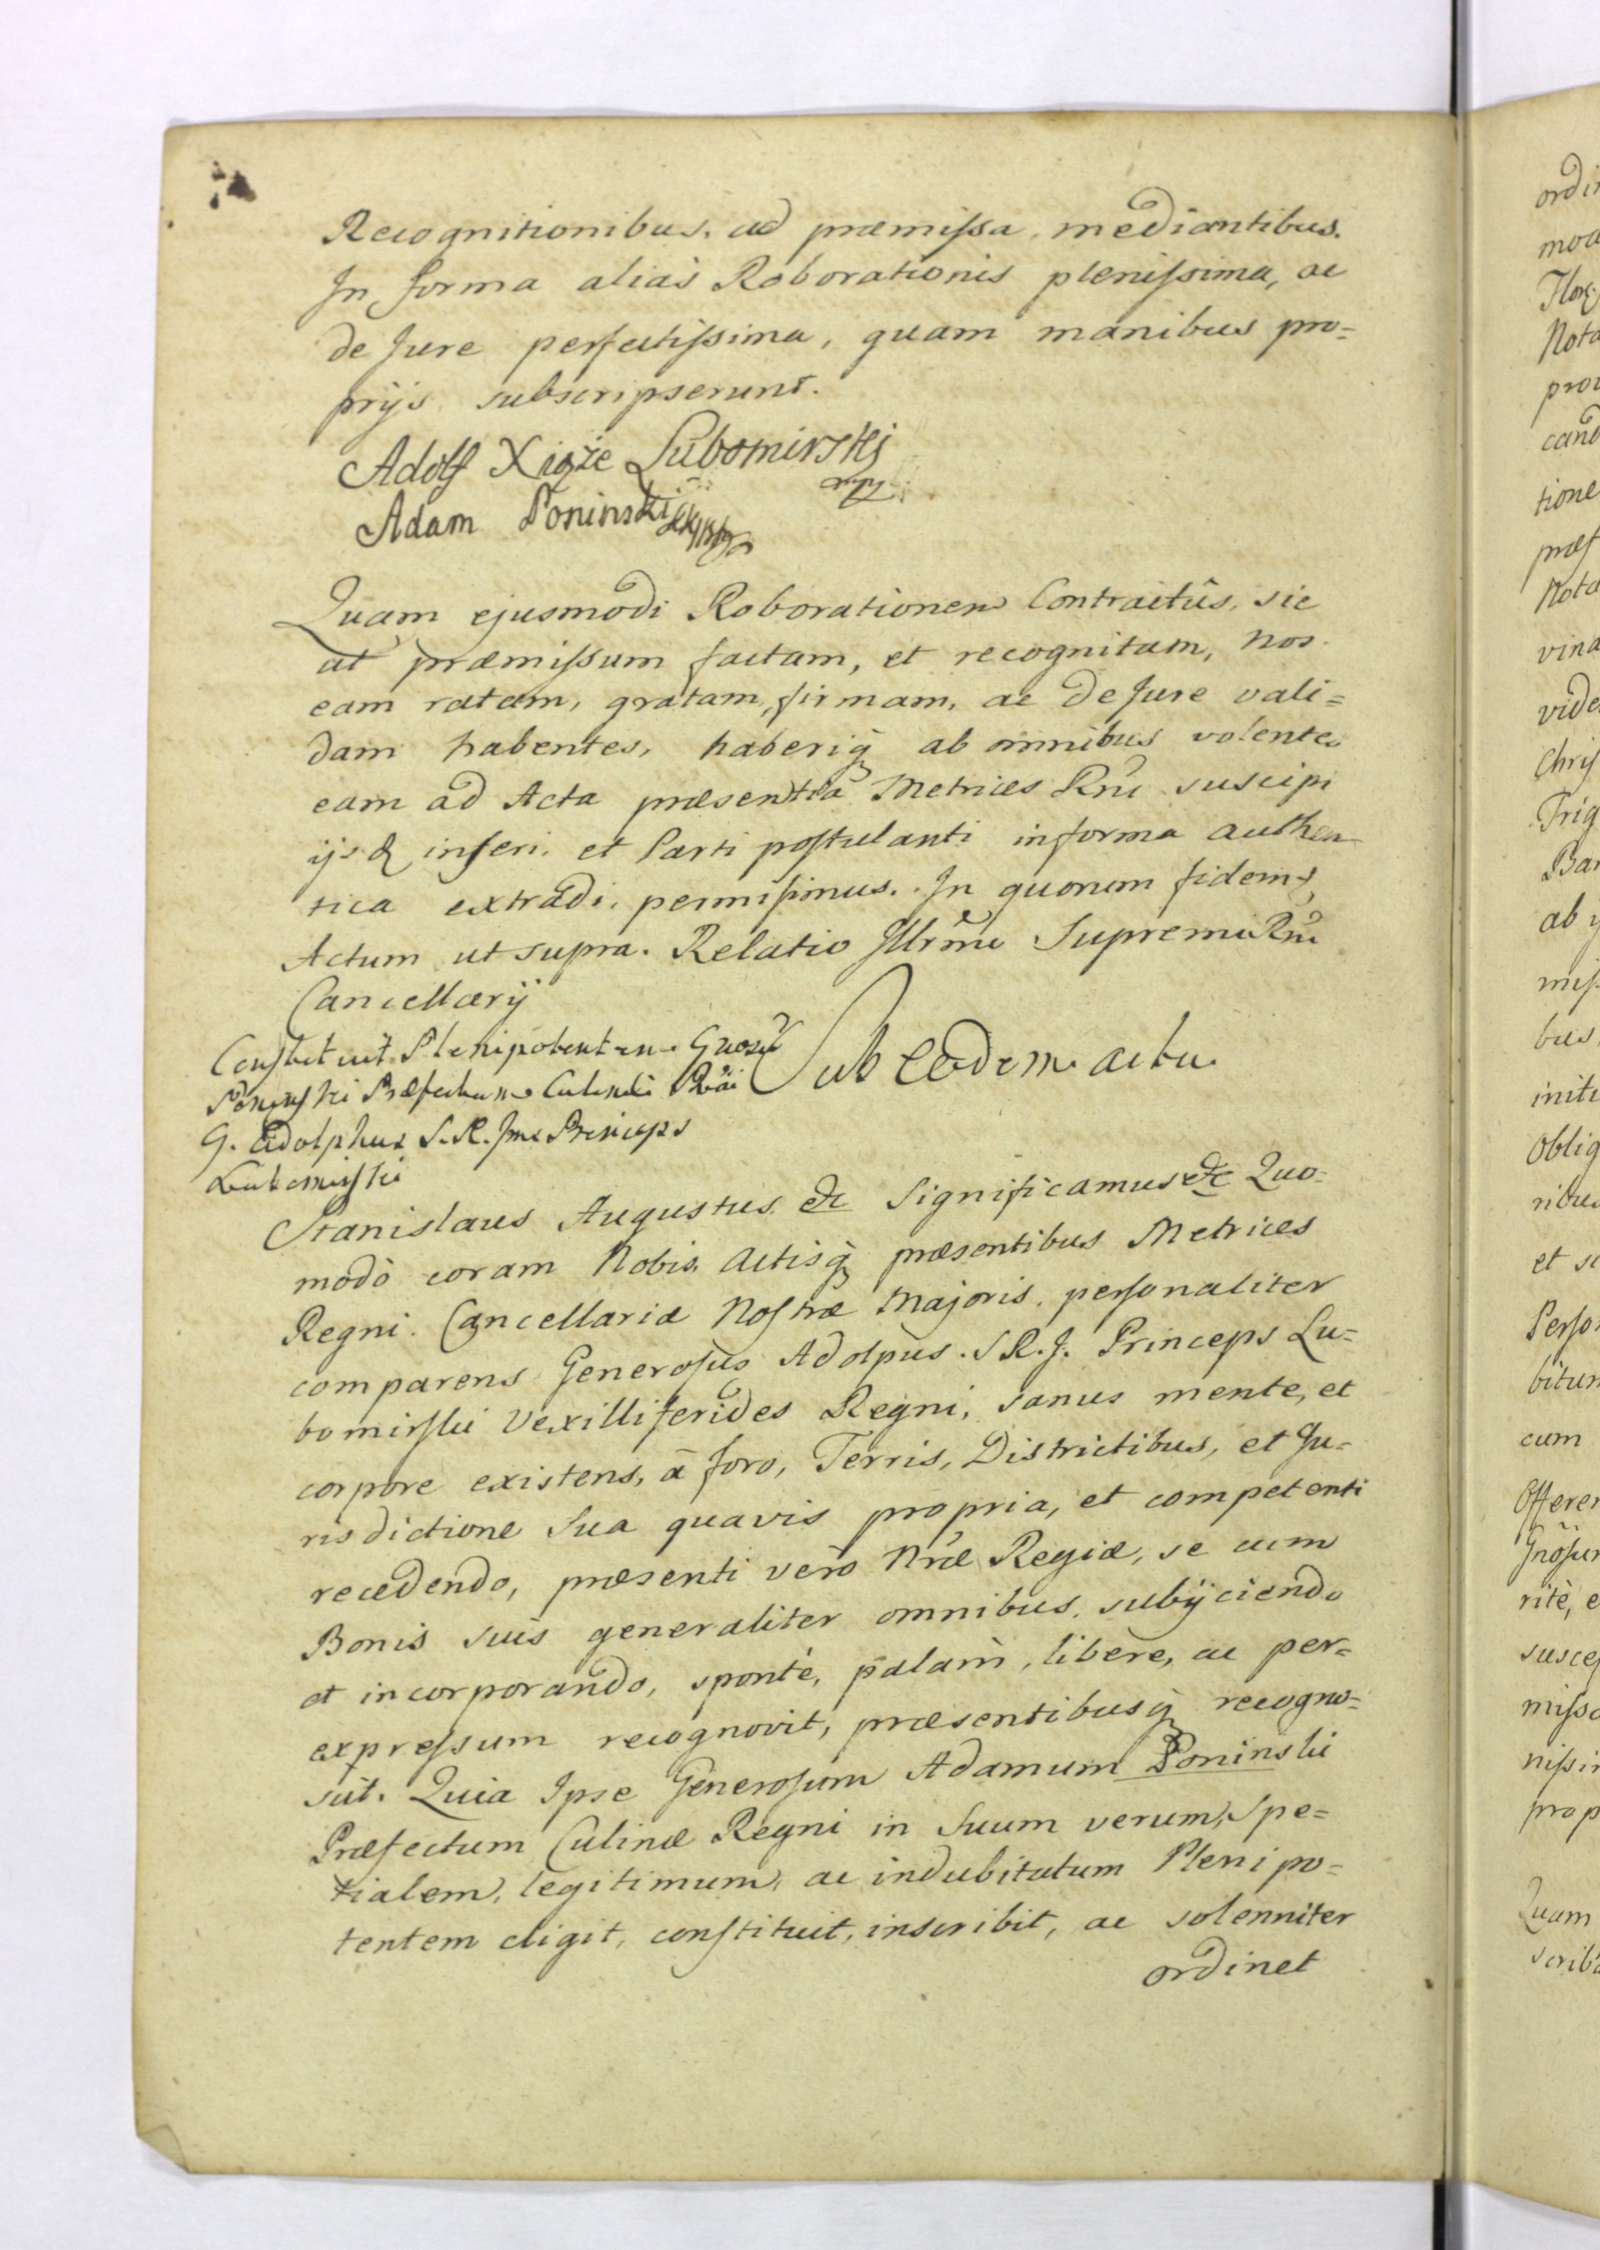 Recognitionibus ad præmissa mediantibus.
In forma alias Roborationis plenissima, ac
de Jure perfectissima, quam manibus pro=
prijs subscripserunt.
Adolf Xiąże Lubomirski
mp
Adam Poninski
Quam ejusmodi Roborationem Contractûs, sic
ut præmissum factam, et recognitam, Nos
eam ratam, gratam, firmam, ac de Jure vali=
dam habentes, haberiq₃ ab omnibus volentes
eam ad Acta præsentia Metrices Rni suscipi
ijsq₃ inseri, et Parti postulanti in forma authen
tica extradi, permisimus. In quorum fidem &
Actum ut supra. Relatio Illrmi Supremi Rni
Cancellarij
Sub eodem actu
Constituit Plenipotentem Gnosum
Poninski Præfectum Culinæ
G. Adolphus S. R. Jm. Princeps
Lubomirski
Stanislaus Augustus &c Significamus &c Quo=
modò coram Nobis Actisq₃ præsentibus Metrices
Regni Cancellariæ Nostræ Majoris personaliter
comparens Generosus Adolpus S. R. J. Princeps Lu=
bomirski Vexilliferides Regni, sanus mente, et
corpore existens, à foro, Terris, Districtibus, et Ju=
risdictione Sua quavis propria, et competenti
recedendo, præsenti verò Nræ Regiæ, se cum
Bonis suis generaliter omnibus subijciendo
et incorporando, spontè, palàm, liberè, ac per=
expressum recognovit, præsentibusq₃ recogno=
scit. Quia Ipse Generosum Adamum Poninski
Præfectum Culinæ Regni in Suum verum, Spe=
tialem, legitimum, ac indubitatum Plenipo=
tentem eligit, constituit, inscribit, ac solenniter
ordinet